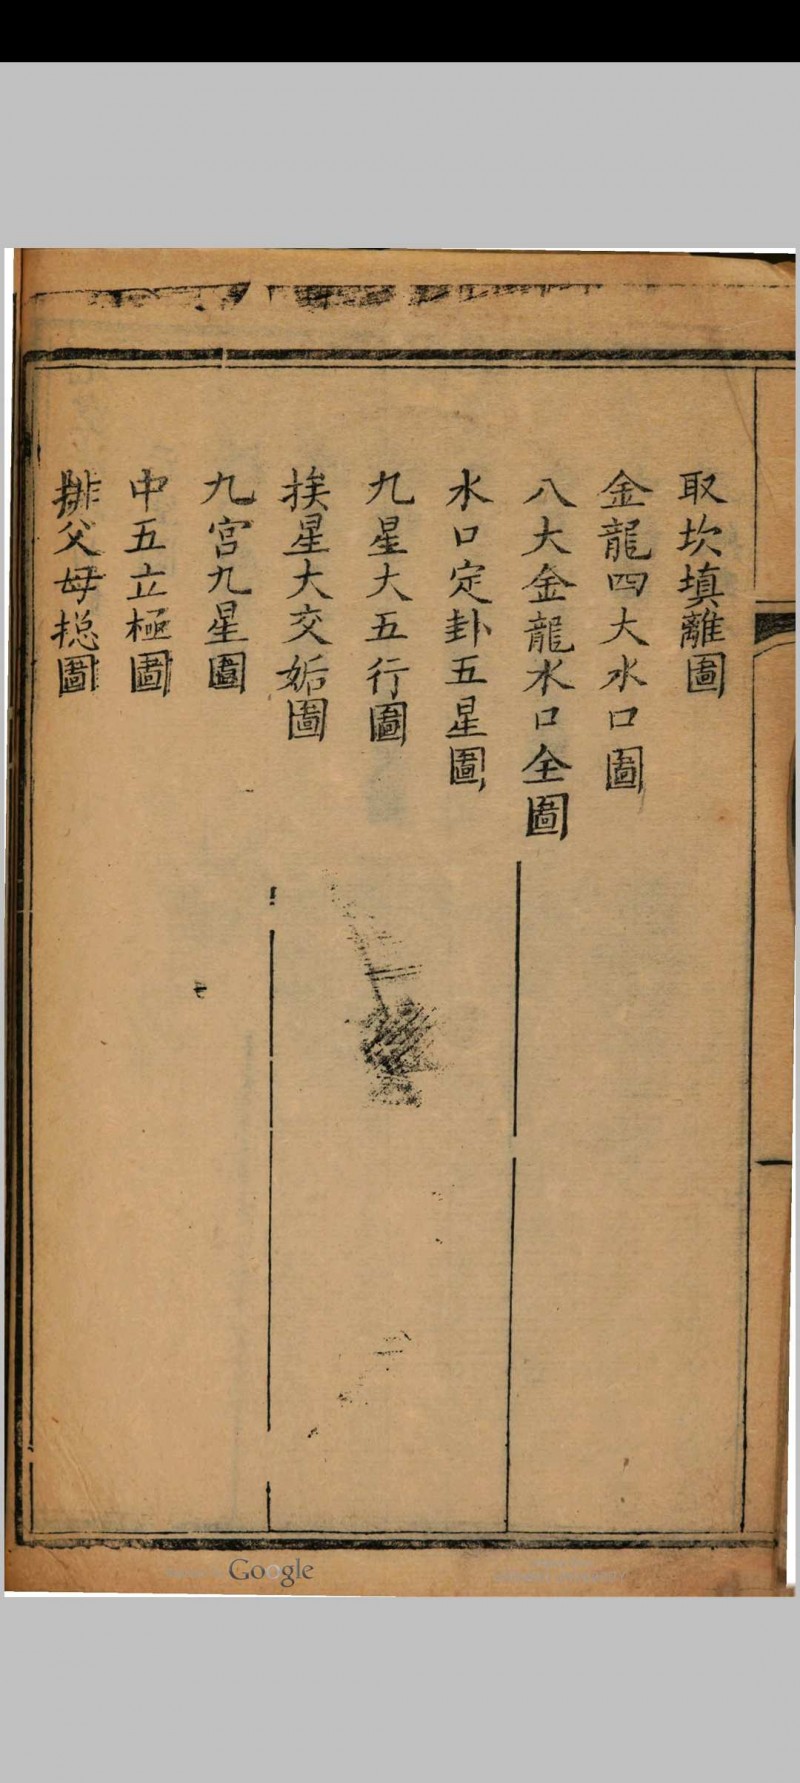 取坎填離圖
金龍四大水口圖
八大金龍水口全圖
水口定卦五星圖
九星大五行圖
挨星大交姤圖
九宮九星圖
中五立極圖
排父母搃圖
Google